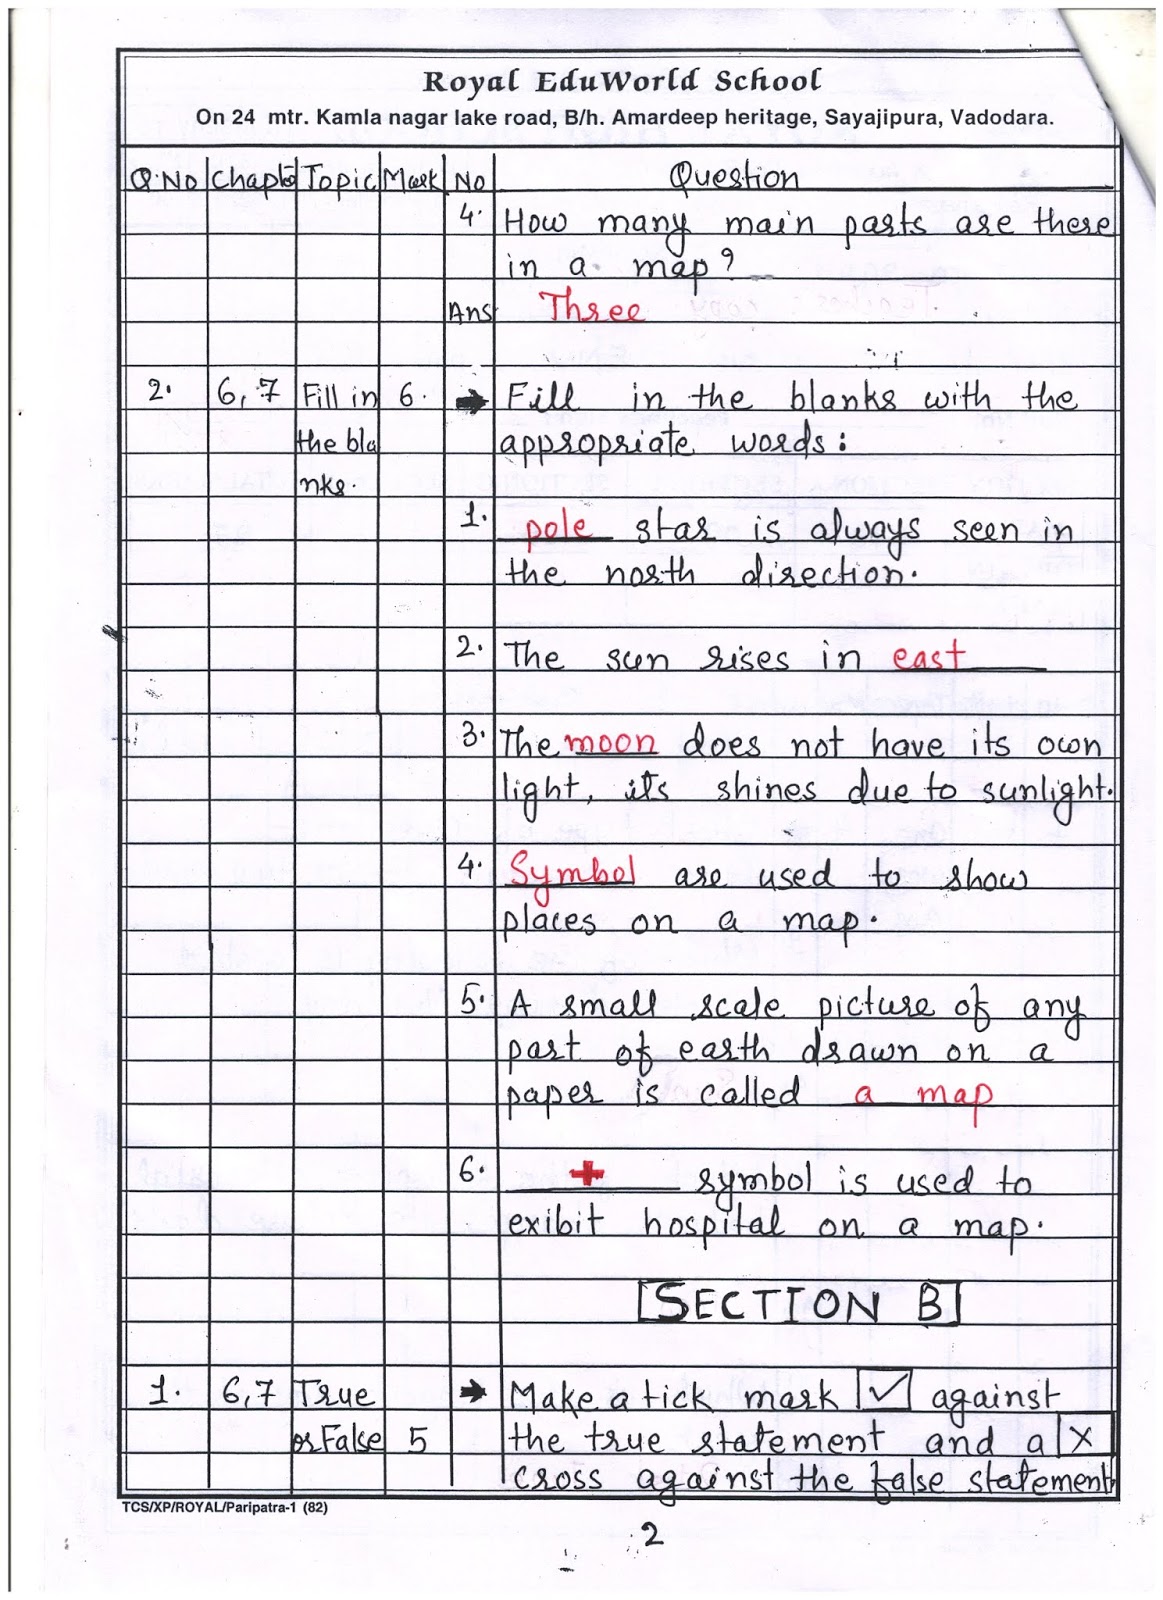 Royal EduWorld School
On 24 mtr. Kamla nagar lake road, B/h. Amardeep heritage, Sayajipura, Vadodara.
Q.No Chapt Topic Mark No Question
4. How many main parts are there
in a map?
Ans Three
2. 6,7 Fill in 6. → Fill in the blanks with the
the bla appropriate words:
nks.
1. pole star is always seen in
the north direction.
2. The sun rises in east
3. The moon does not have its own
light, its shines due to sunlight.
4. Symbol are used to show
places on a map.
5. A small scale picture of any
part of earth drawn on a
paper is called a map
6. + symbol is used to
exibit hospital on a map.
[SECTION B]
1. 6,7 True → Make a tick mark ✓ against
or False 5 the true statement and a X
cross against the false statement.
TCS/XP/ROYAL/Paripatra-1 (82)
2